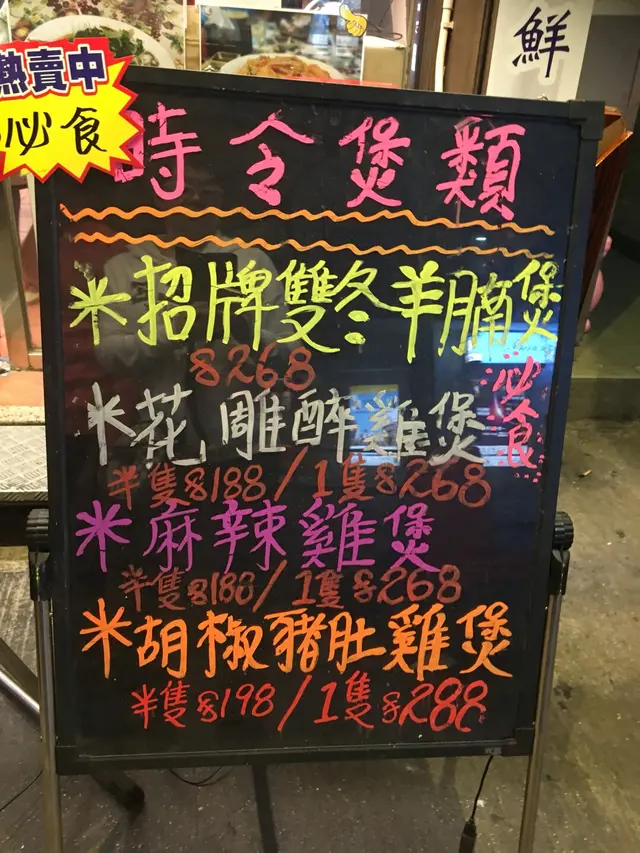 鮮
熱賣中
必食
時令煲類
*招牌雙冬羊腩煲
$268
必食
*花雕醉雞煲
半隻$188/1隻$268
*麻辣雞煲
半隻$188/1隻$268
*胡椒豬肚雞煲
半隻$198/1隻$288